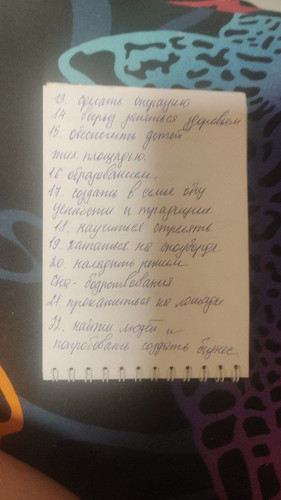 13. сделать операцию
14 заняться здоровьем
15 обеспечить детей
жил площадью.
16 образованием.
17. создать в семье общ
ценности и традиции.
18. научиться стрелять
19 кататься на сноуборде
20. наладить режим
сна - бодрствования
21 прокатиться на лошади
22. найти людей и
попробовать создать бизнес.